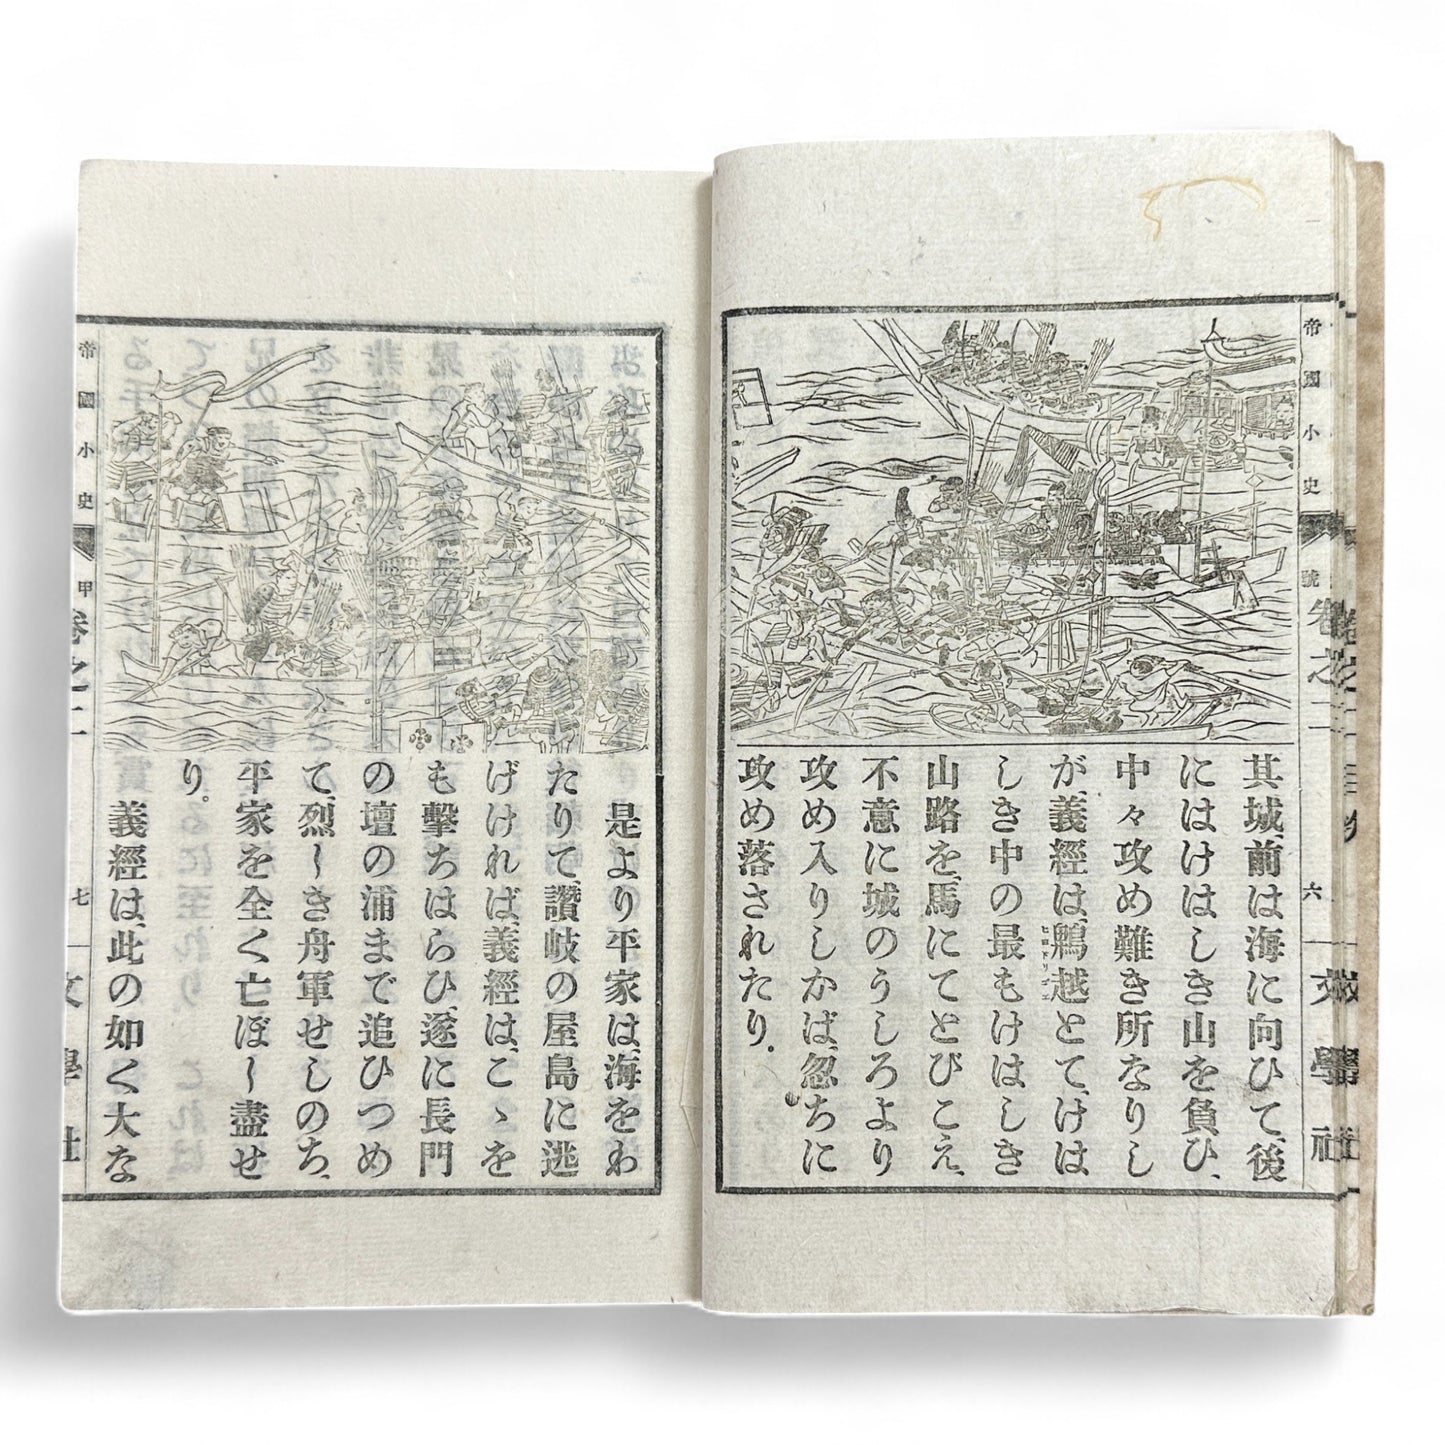 帝國小史 甲號卷之二 六 文學社
其城、前は海に向ひて、後
にはけはしき山を負ひ、
中々攻め難き所なりし
が、義經は、鵯越とて、けは
しき中の最もけはしき
山路を、馬にてとびこえ、
不意に城のうしろより
攻め入りしかば、忽ちに
攻め落されたり。
是より平家は、海をわ
たりて、讚岐の屋島に逃
げけれは、義經は、こゝを
も擊ちはらひ、遂に長門
の壇の浦まで追ひつめ
て、烈しき舟軍せしのち、
平家を全く亡ぼし盡せ
り。
義經は、此の如く大な
帝國小史 甲 卷之二 七 文學社